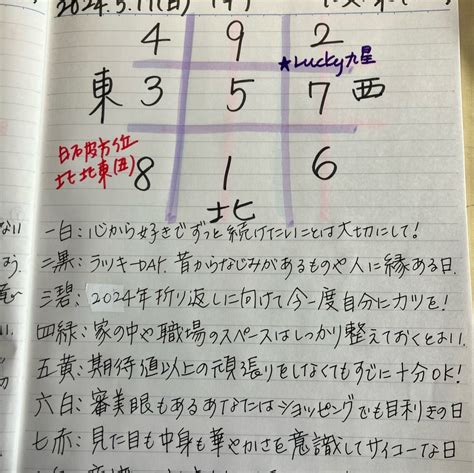 4 9 2
★Lucky九星
東 3 5 7 西
日破方位
北北東(丑)
8 1 6
北
一白:心から好きでずっと続けたいことは大切にして!
二黒:ラッキーDAY.昔からなじみがあるものや人に縁ある日.
三碧:2024年折り返しに向けて今一度自分にカツを!
四緑:家の中や職場のスペースはしっかり整えておくとよい.
五黄:期待値以上の頑張りをしなくてもすでに十分OK!
六白:審美眼もあるあなたはショッピングでも目利きの日
七赤:見た目も中身も華やかさを意識してサイコーな日